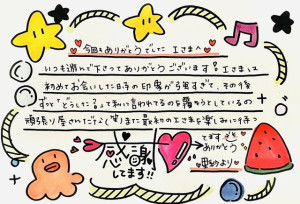 今回もありがとうでした！エさまへ
いつも遊んで下さってありがとうございます！エさまとは
初めてお会いした日の印象が強すぎて、その後
ずっと「どうした？」って私に言われてるのを
頑張り屋さんだな(笑)また最初のエさまを楽しみに待っ
てます
ありがとう
感謝
してます!!
より